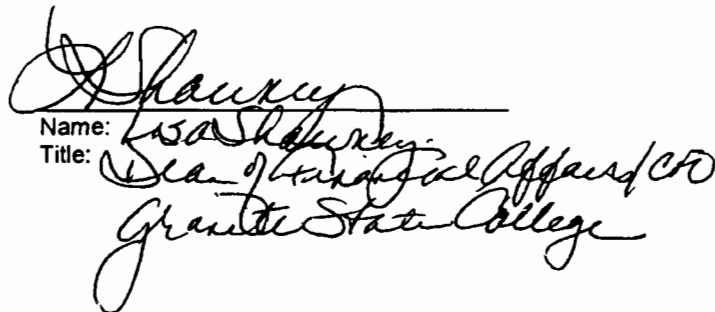 LShawney
Name: Lisa Shawney
Title: Dean of Financial Affairs/CFO
Granite State College